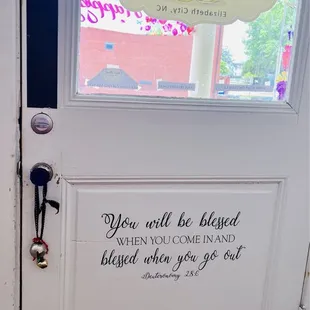 Elizabeth City, NC
You will be blessed
WHEN YOU COME IN AND
blessed when you go out
-Deuteronomy 28:6